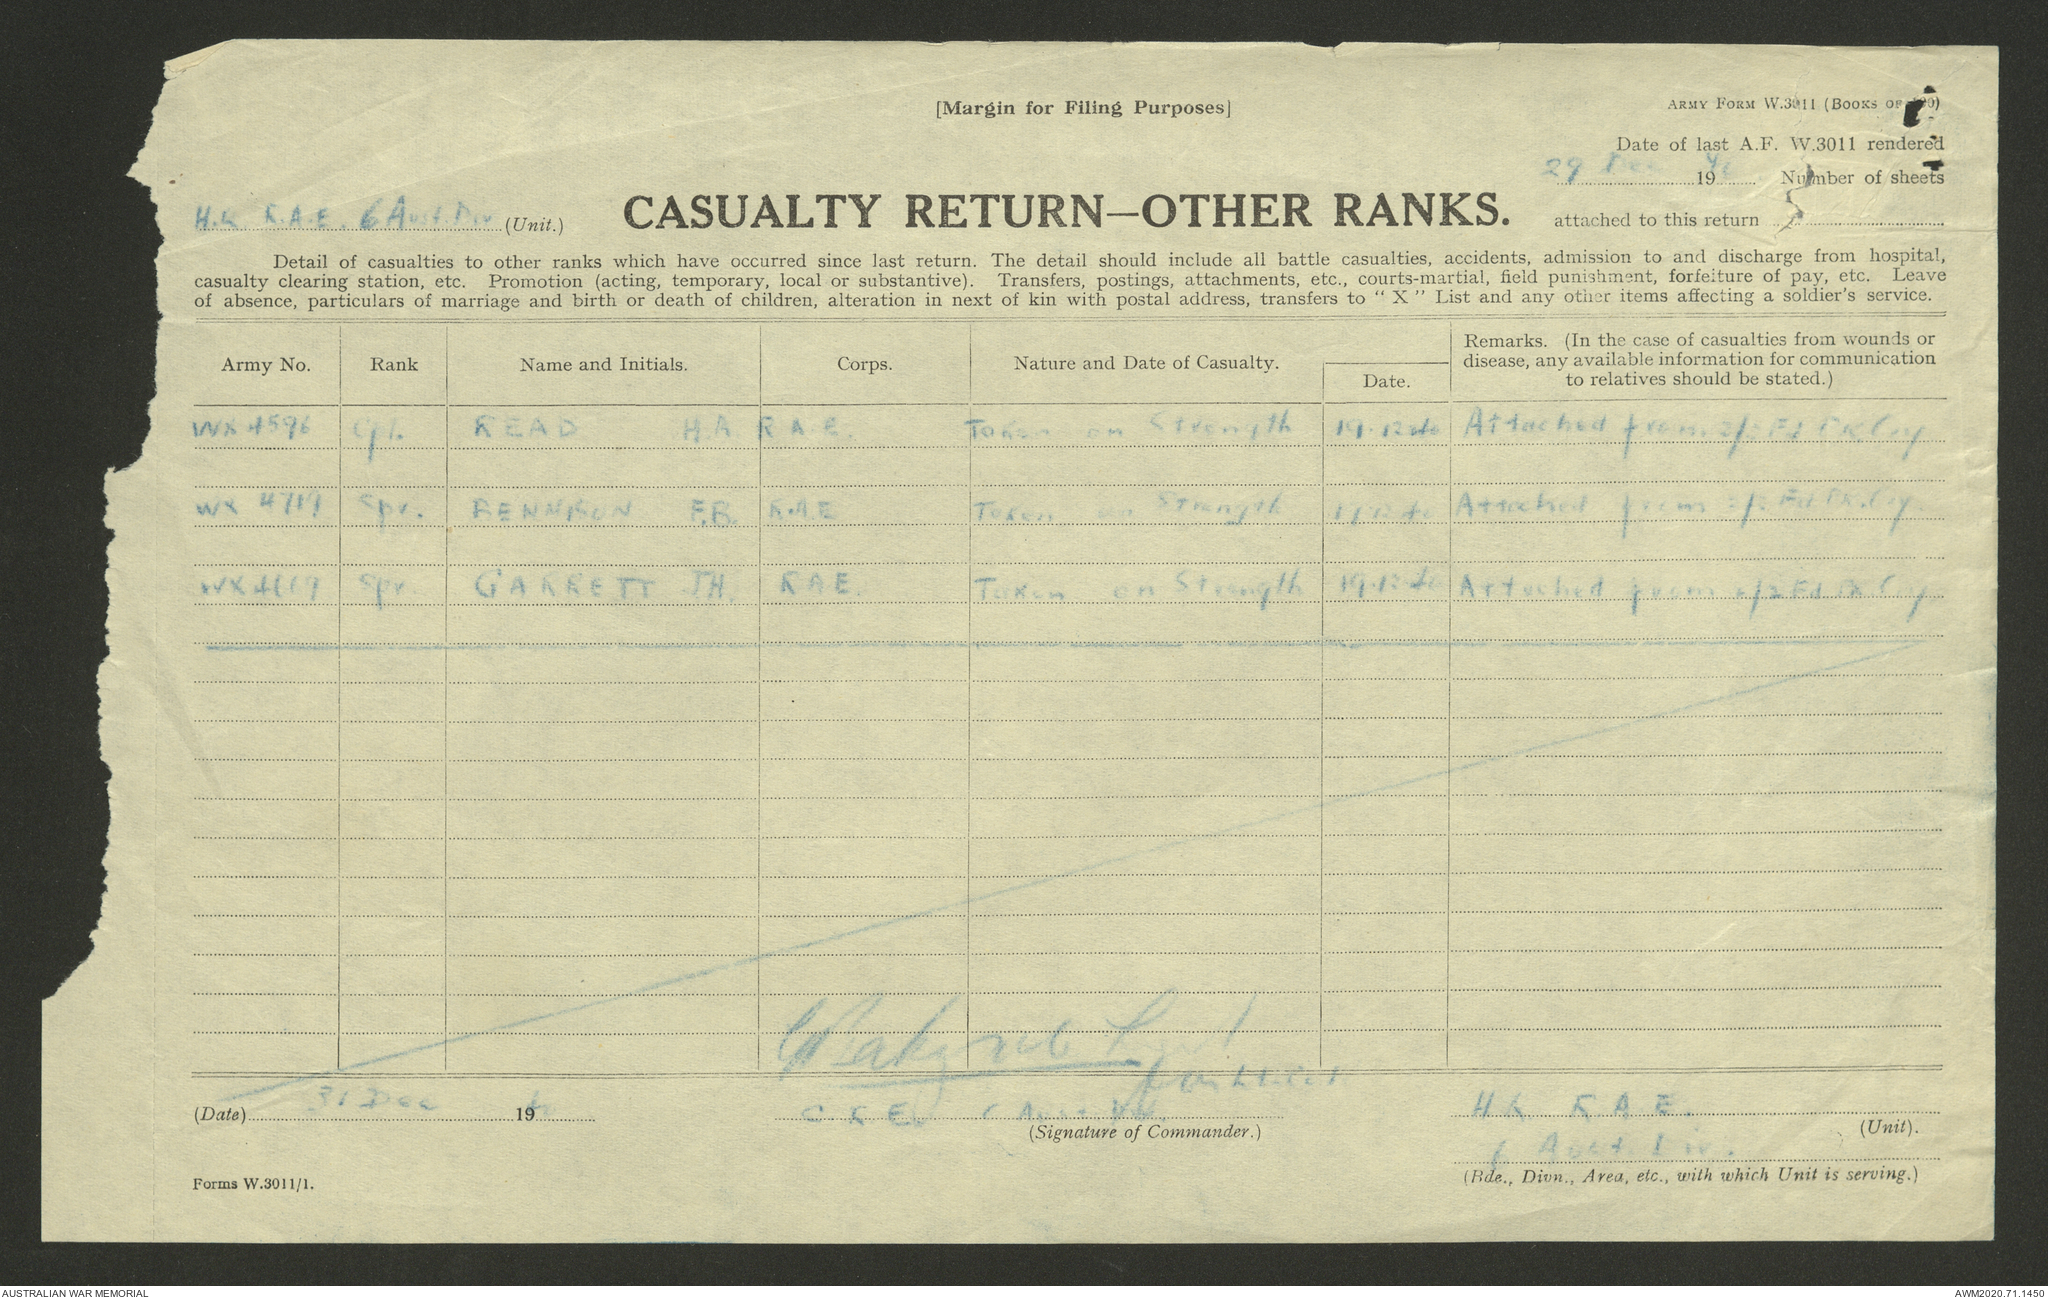 [Margin for Filing Purposes]
ARMY FORM W.3011 (BOOKS OF
Date of last A.F. W.3011 rendered
29 Dec 1940 Number of sheets
attached to this return
H.Q R.A.E. 6 Aust. Div (Unit.)
CASUALTY RETURN—OTHER RANKS.
Detail of casualties to other ranks which have occurred since last return. The detail should include all battle casualties, accidents, admission to and discharge from hospital,
casualty clearing station, etc. Promotion (acting, temporary, local or substantive). Transfers, postings, attachments, etc., courts-martial, field punishment, forfeiture of pay, etc. Leave
of absence, particulars of marriage and birth or death of children, alteration in next of kin with postal address, transfers to “ X ” List and any other items affecting a soldier's service.
Army No. Rank Name and Initials. Corps. Nature and Date of Casualty. Date. Remarks. (In the case of casualties from wounds or
disease, any available information for communication
to relatives should be stated.)
WX 4596 Cpl. READ H.A R.A.E. Taken on Strength 19.12.40 Attached from Fd Pk. Coy
WX 4719 Spr. BENNISON F.B. R.A.E Taken on Strength 19.12.40 Attached from Fd Pk. Coy.
Spr. GARRETT T.H. R.A.E. Taken on Strength 19.12.40 Attached from 2/2 Fd Pk Coy
(Date) 31 Dec 1940
C R E 6 Aust Div.
(Signature of Commander.)
H.Q R.A.E.
(Unit).
6 Aust. Div.
(Bde., Divn., Area, etc., with which Unit is serving.)
Forms W.3011/1.
AUSTRALIAN WAR MEMORIAL
AWM2020.71.1450